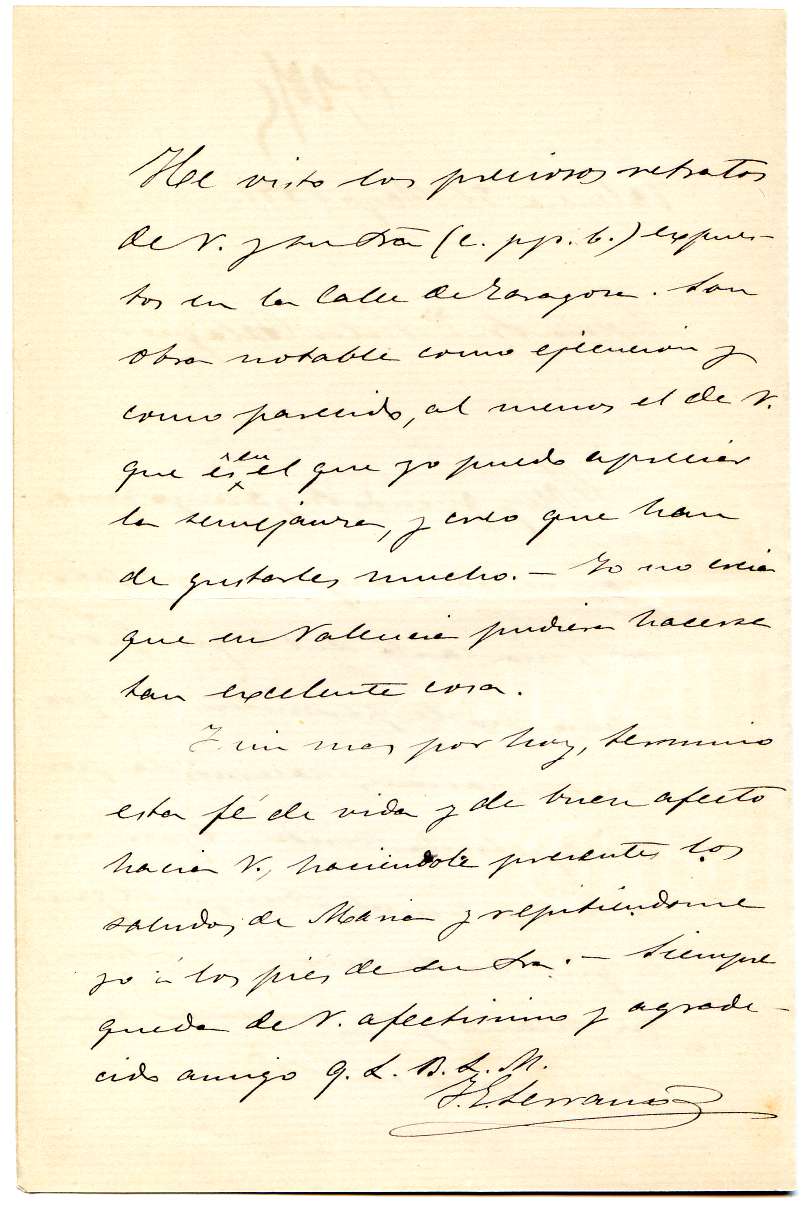 He visto los preciosos retratos
de V. y su Sra (c. p. b.) expues-
tos en la Calle de Zaragoza. Son
obra notable como ejecucion y
como parecido, al menos el de V.
que es en el que yo puedo apreciar
la semejanza, y creo que han
de gustarles mucho. — Yo no creia
que en Valencia pudiera hacerse
tan excelente cosa.
Y sin mas por hoy, termino
esta fé de vida y de buen afecto
hacia V., haciendole presentes los
saludos de Maria y repitiéndome
yo á los piés de su Sra. — Siempre
queda de V. afectisimo y agrade-
cido amigo q. L. B. L. M.
J. E. Serrano